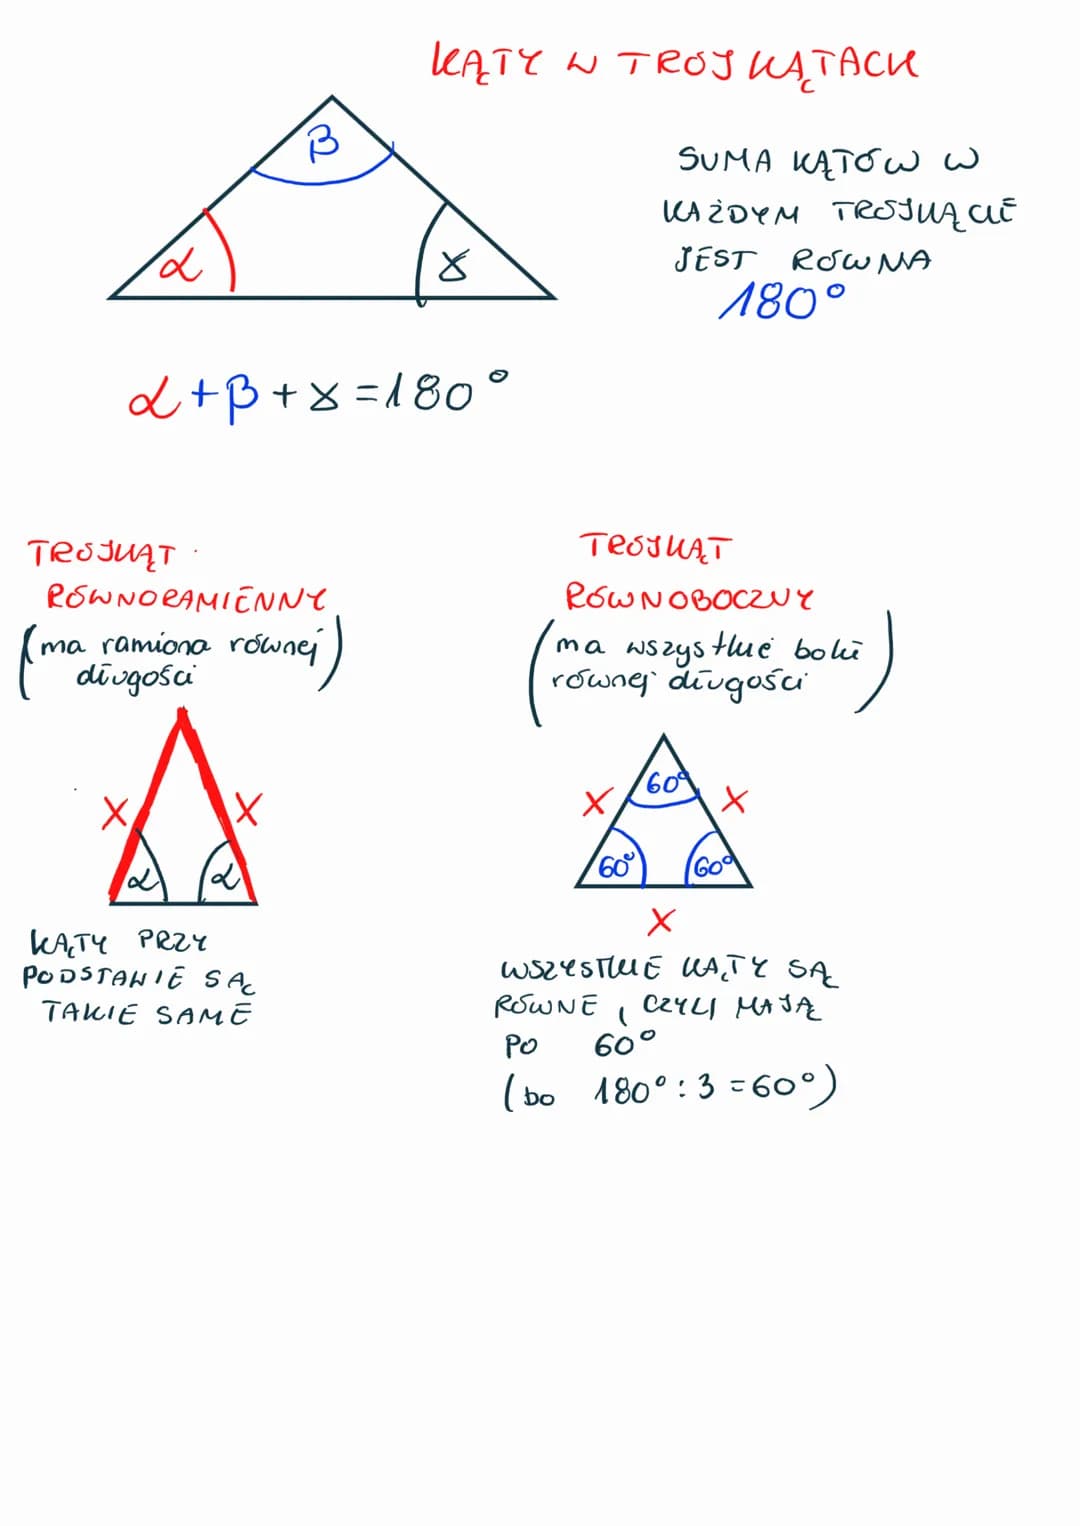 KĄTY W TRÓJKĄTACH
β
α
γ
SUMA KĄTÓW W
KAŻDYM TRÓJKĄCIE
JEST RÓWNA
180°
α+β+γ=180°
TRÓJKĄT
RÓWNORAMIENNY
(ma ramiona równej
długości)
x x
α α
KĄTY PRZY
PODSTAWIE SĄ
TAKIE SAME
TRÓJKĄT
RÓWNOBOCZNY
(ma wszystkie boki
równej długości)
60°
x x
60° 60°
x
WSZYSTKIE KĄTY SĄ
RÓWNE, CZYLI MAJĄ
PO 60°
(bo 180°:3=60°)